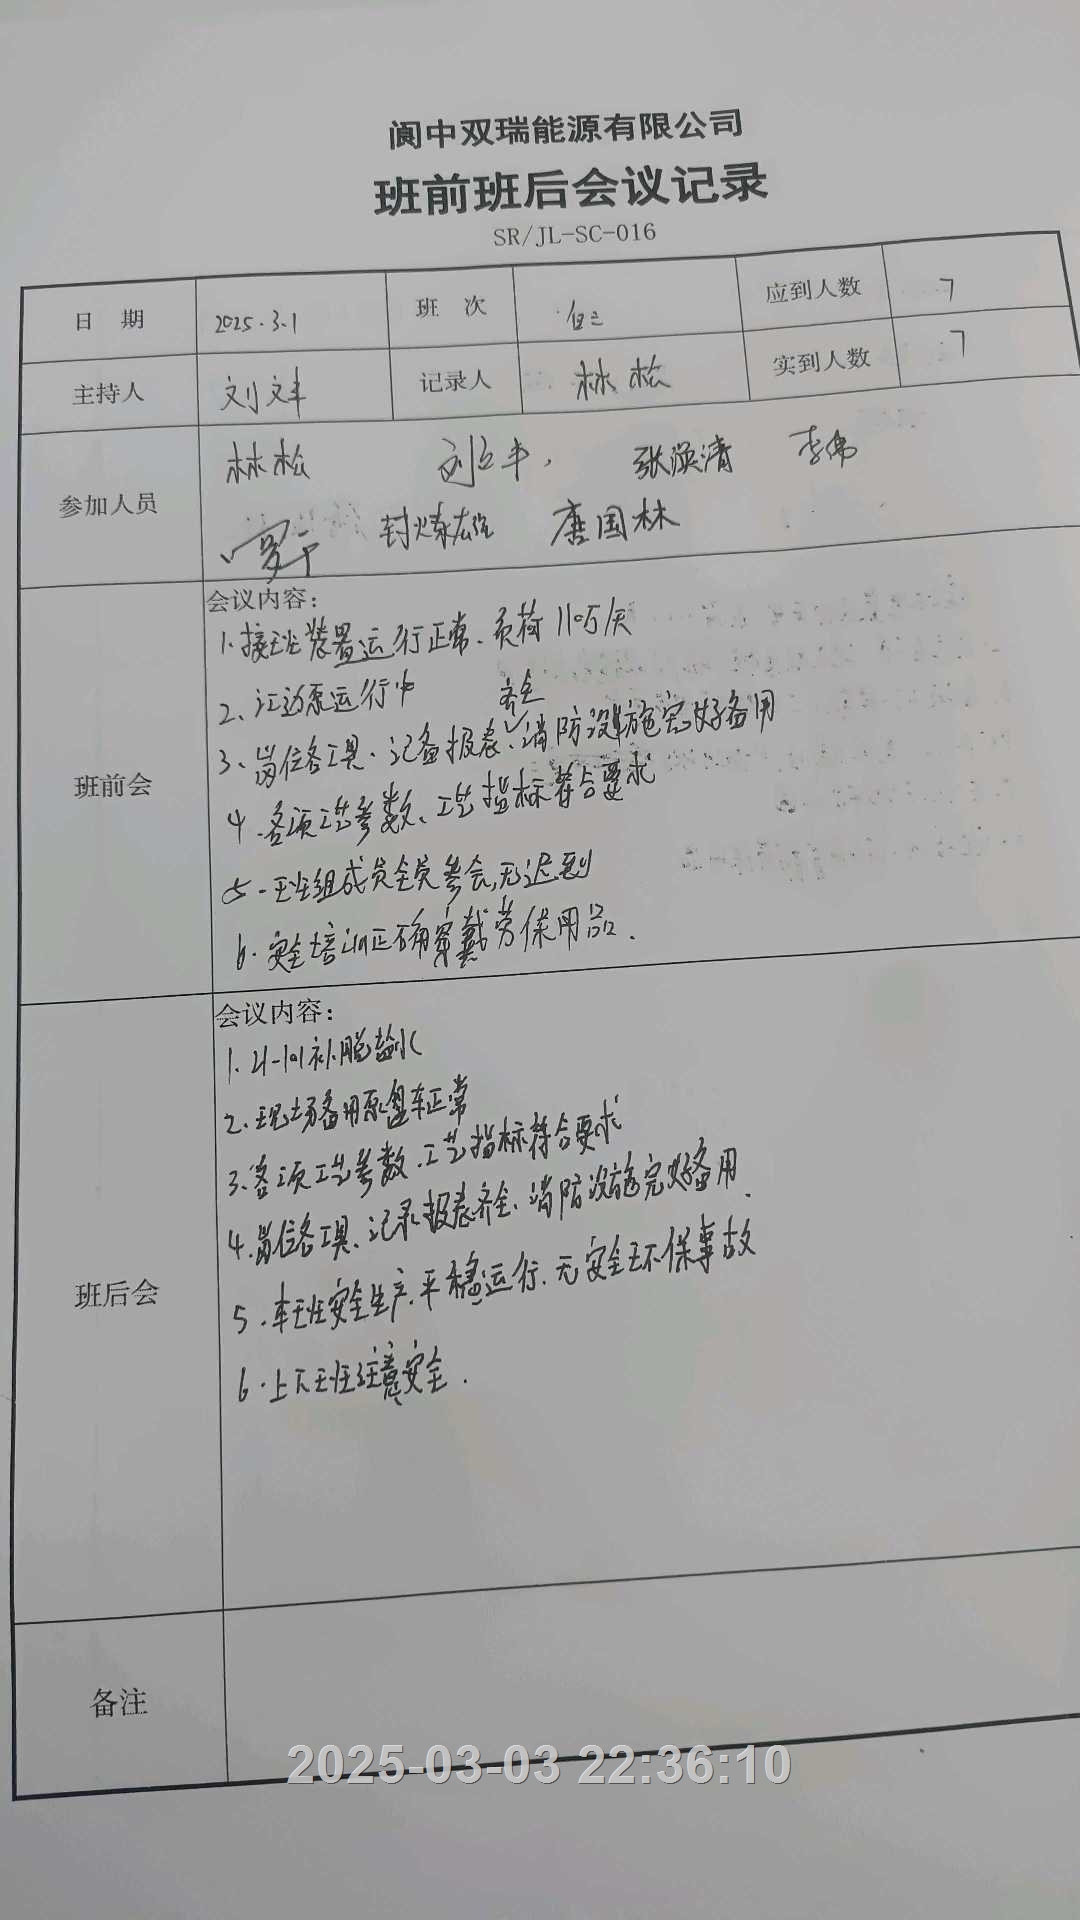 阆中双瑞能源有限公司
班前班后会议记录
SR/JL-SC-016
日 期 2025.3.1 班 次 应到人数 7
主持人 记录人 林松 实到人数 7
参加人员 林松 张涣清 李伟
唐国林
班前会 会议内容：
1.接班装置运行正常、负荷110万/天
2、江边泵运行中
3、岗位各工具、记备报表齐全、消防设施完好备用
4.各项工艺参数、工艺指标符合要求
5.班组成员全员参会,无迟到
6.安全培训正确穿戴劳保用品.
班后会 会议内容：
1. 补脱盐水
2.现场备用泵盘车正常
3.各项工艺参数.工艺指标符合要求
4.岗位各工具、记录报表齐全、消防设施完好备用.
5.本班安全生产.平稳运行.无安全环保事故
6.上下班注意安全.
备注
2025-03-03 22:36:10